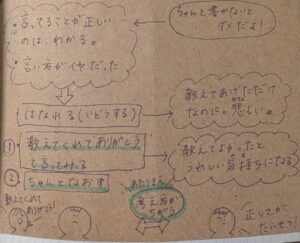 ・言ってることが正しい
のは、わかる。
・言い方がイヤだった
ちゃんと書かないと
ダメだよ!
はなれる(いどうする)
教えてあげただけ
なのに。悲しい。
かな
① ・教えてくれてありがとう
と言ってみる
教えてよかったと
うれしい気持ちになる
② ちゃんとなおす
あたりまえ
考え方が
ちがう
教えてくれて
ありがとう!
正しさが
たいせつ